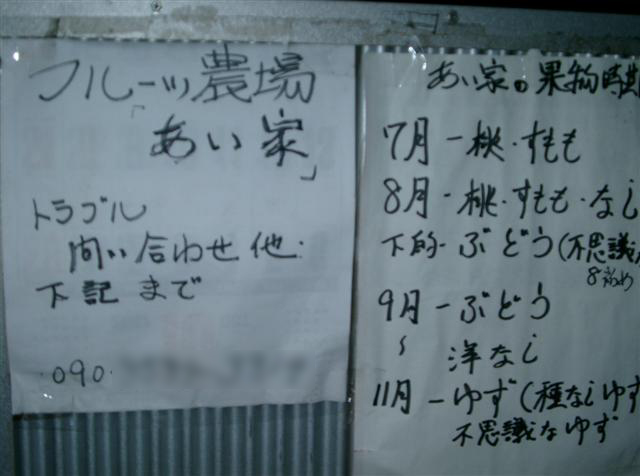 フルーツ農場
「あい家」
トラブル
問い合わせ他
下記まで
090
あい家の果物時期
7月－桃・すもも
8月－桃・すもも・なし
下的－ぶどう(不思議
9月－ぶどう
〜
洋なし
11月－ゆず(種なしゆず
不思議なゆず